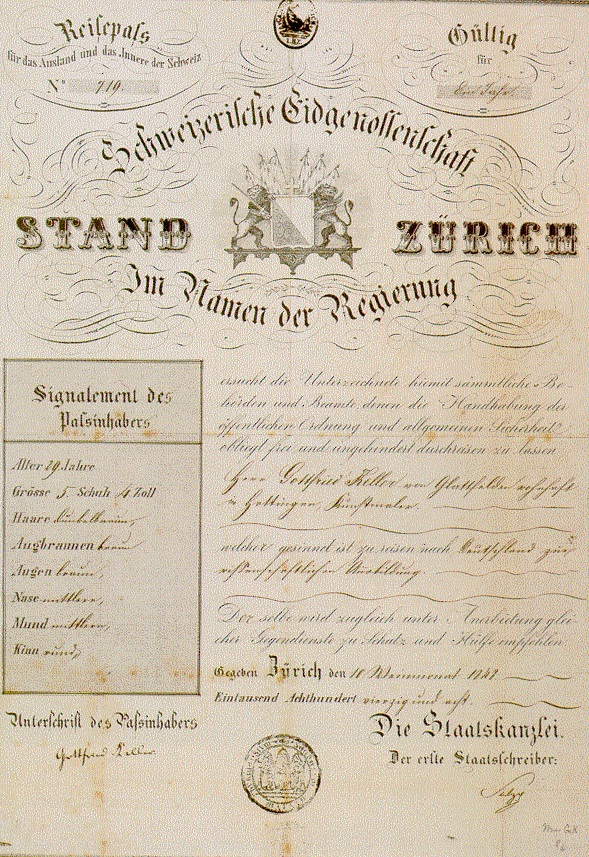 Reisepass
für das Ausland und das Innere der Schweiz
No 719.
Gültig
für
Ein Jahr.
Schweizerische Eidgenossenschaft
STAND ZÜRICH
Im Namen der Regierung
Signalement des
Passinhabers
Alter 29 Jahre
Grösse 5. Schuh 4 Zoll
Haare dunkelbraun,
Augbraunen braun
Augen braun,
Nase mittlere,
Mund mittlere,
Kinn rund,
Unterschrift des Passinhabers
Gottfried Keller.
ersucht die Unterzeichnete hiemit sämmtliche Be-
hörden und Beamte, denen die Handhabung der
öffentlichen Ordnung und allgemeinen Sicherheit
obliegt frei und ungehindert durchreisen zu lassen
Herr Gottfried Keller von Glattfelden wohnhaft
in Hottingen, Kunstmaler.
welcher gesinnet ist zu reisen nach Deutschland zur
wissenschaftlichen Ausbildung.
Der selbe wird zugleich unter Anerbietung glei-
cher Gegendienste zu Schutz und Hülfe empfohlen
Gegeben Zürich den 10 Weinmonat 1848
Eintausend Achthundert vierzig und acht.
Die Staatskanzlei.
Der erste Staatsschreiber: